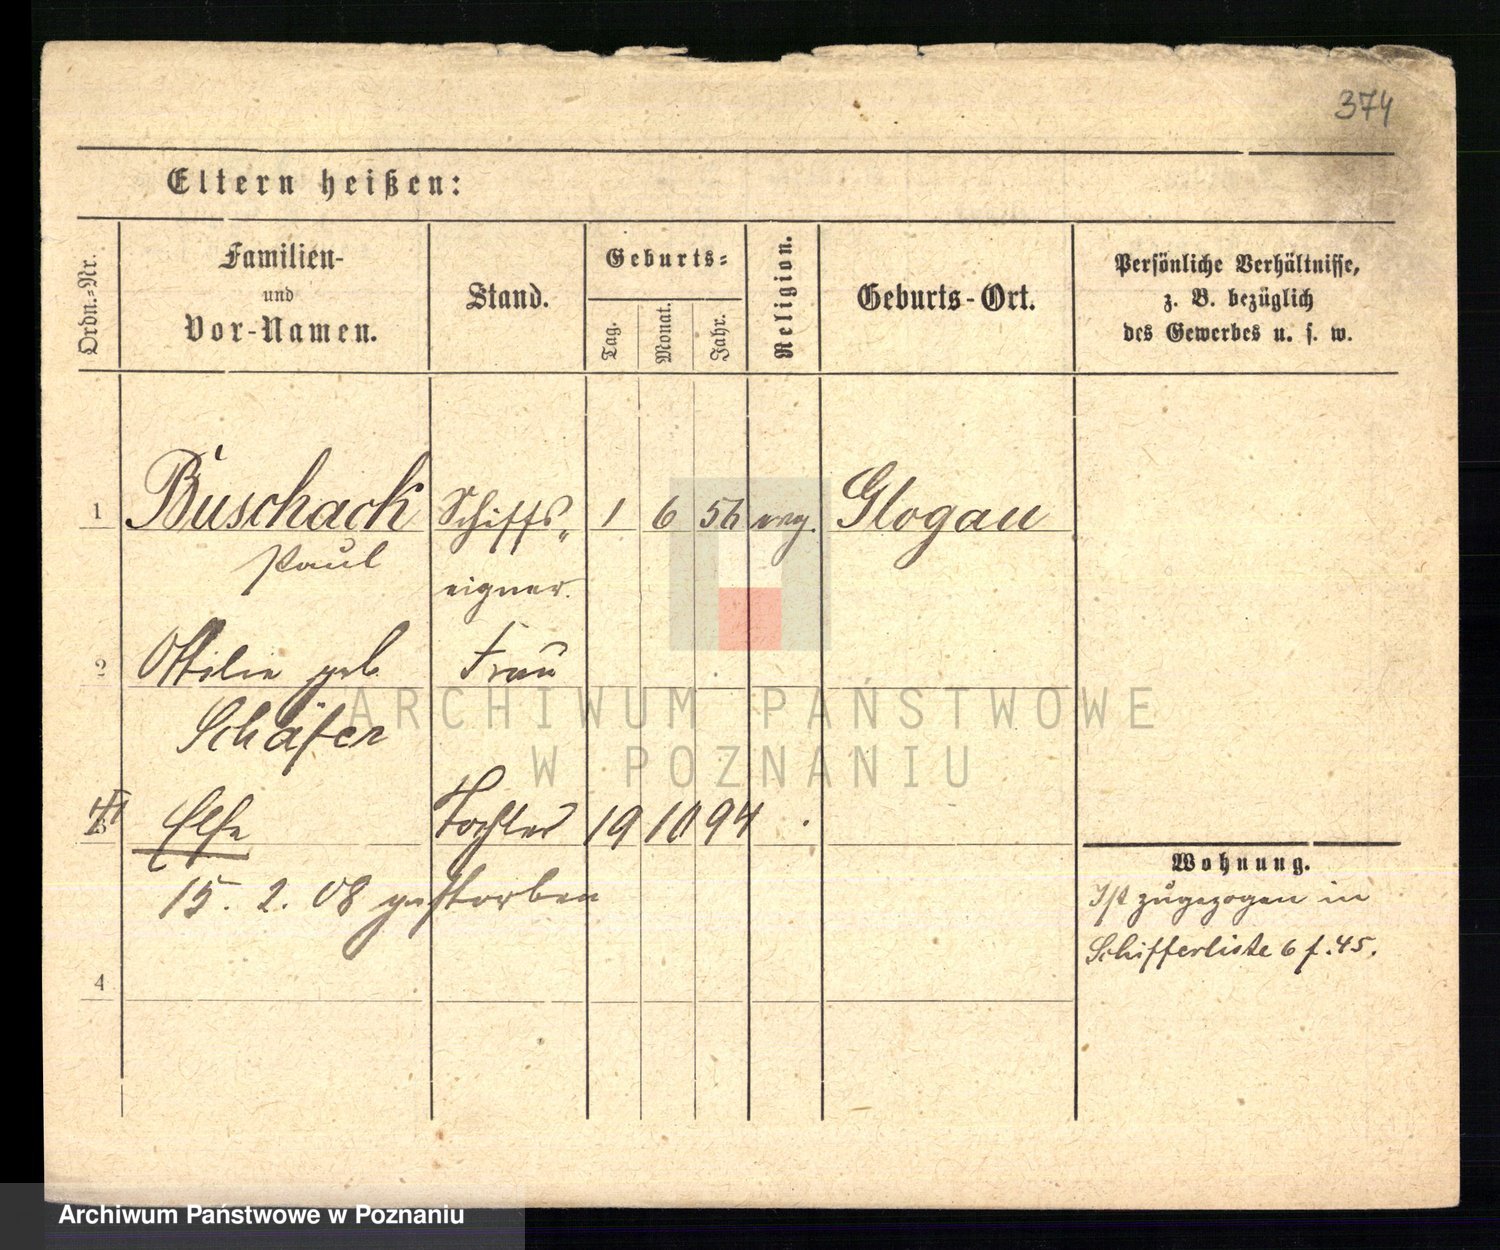 374
Eltern heißen:
Ordn.-Nr.
Familien-
und
Vor-Namen.
Stand.
Geburts-
Tag.
Monat.
Jahr.
Religion.
Geburts-Ort.
Persönliche Verhältnisse,
z. B. bezüglich
des Gewerbes u. s. w.
1 Buschack Schiffs- 1 6 56 evg. Glogau
Paul
eigner.
2 Ottilie geb. Frau
Schäfer
3 Else Tochter 19 10 94
15. 2. 08 gestorben
4
Wohnung.
Ist zugezogen in
Schifferliste 6 f. 45.
ARCHIWUM PAŃSTWOWE
W POZNANIU
Archiwum Państwowe w Poznaniu